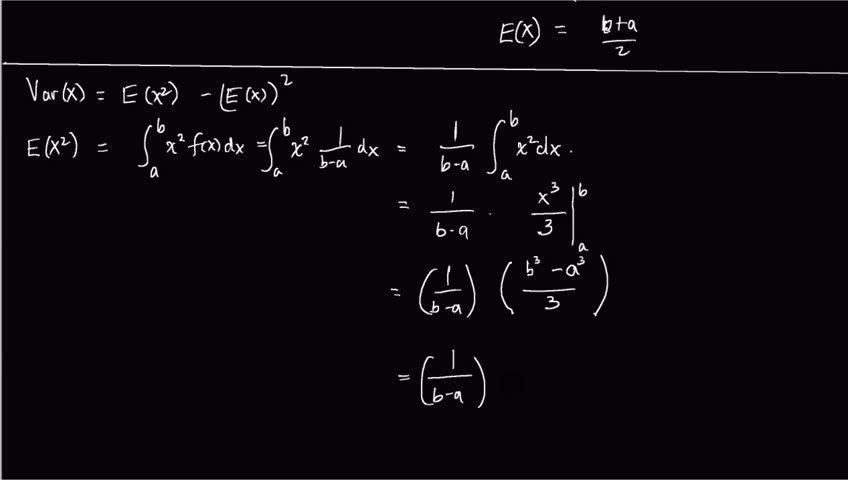 E(X) = \frac{b+a}{2}
Var(x) = E(x²) - (E(x))²
E(X²) = \int_a^b x² f(x) dx = \int_a^b x² \frac{1}{b-a} dx = \frac{1}{b-a} \int_a^b x² dx.
= \frac{1}{b-a} \cdot \frac{x³}{3} |_a^b
= (\frac{1}{b-a}) (\frac{b³-a³}{3})
= (\frac{1}{b-a})